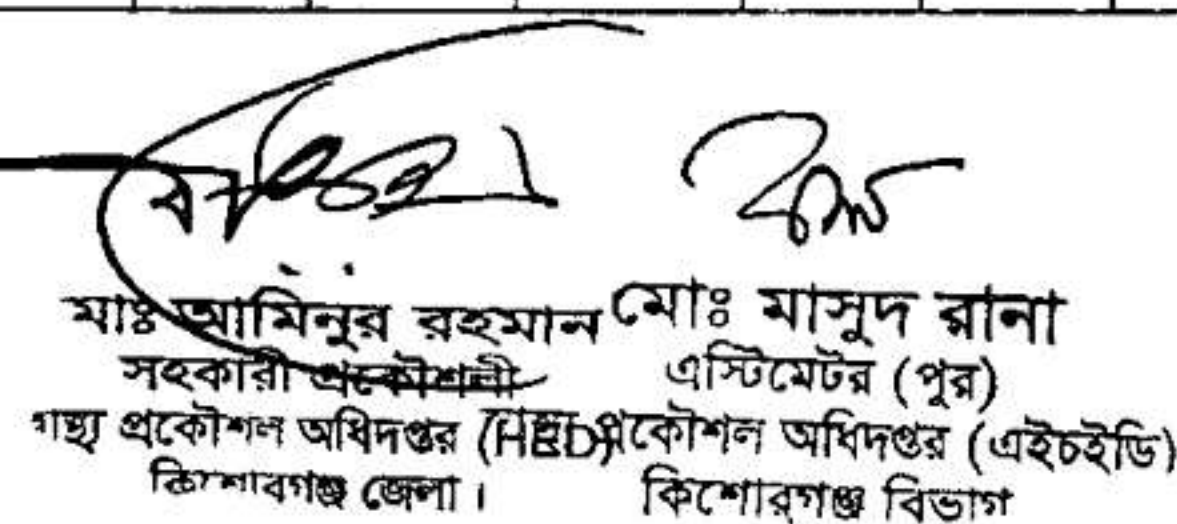 মোঃ আমিনুর রহমান
সহকারী প্রকৌশলী
স্বাস্থ্য প্রকৌশল অধিদপ্তর (HED)
কিশোরগঞ্জ জেলা।
মোঃ মাসুদ রানা
এস্টিমেটর (পুর)
স্বাস্থ্য প্রকৌশল অধিদপ্তর (এইচইডি)
কিশোরগঞ্জ বিভাগ